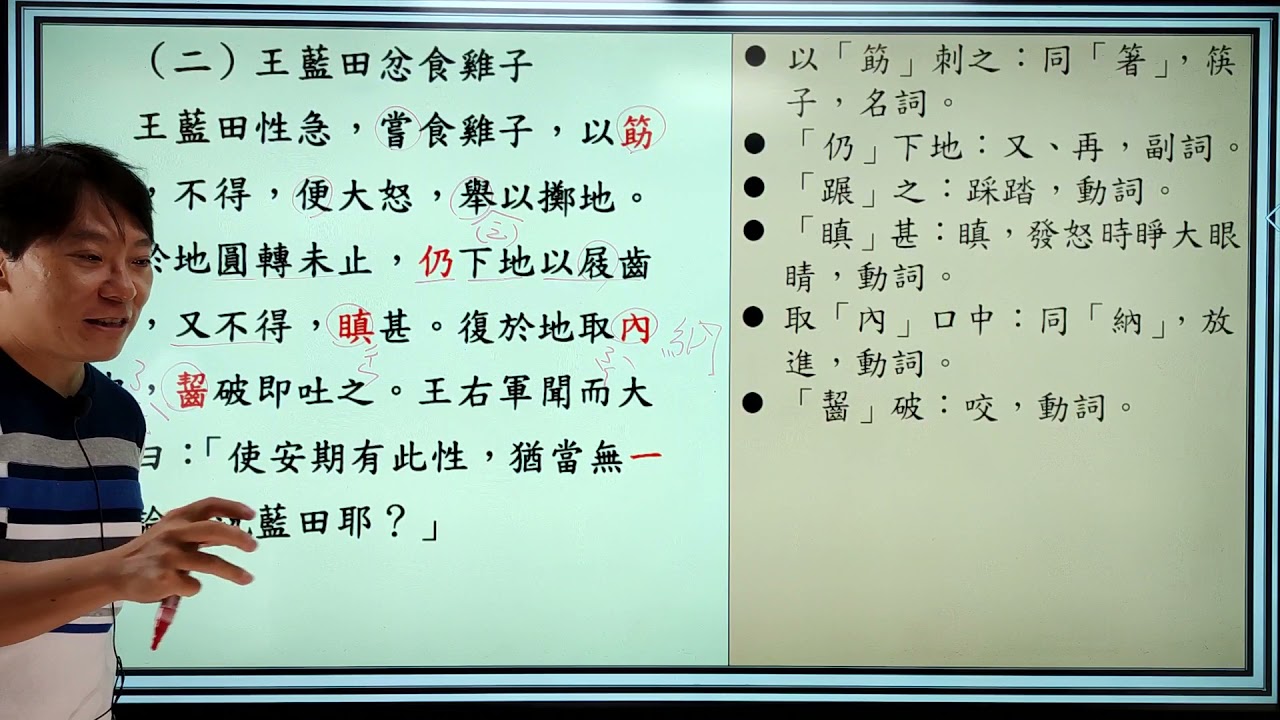 （二）王藍田忿食雞子
王藍田性急，嘗食雞子，以筯
，不得，便大怒，舉以擲地。
於地圓轉未止，仍下地以屐齒
，又不得，瞋甚。復於地取內
，齧破即吐之。王右軍聞而大
曰：「使安期有此性，猶當無一
藍田耶？」
納
● 以「筯」刺之：同「箸」，筷
子，名詞。
● 「仍」下地：又、再，副詞。
● 「蹍」之：踩踏，動詞。
● 「瞋」甚：瞋，發怒時睜大眼
睛，動詞。
● 取「內」口中：同「納」，放
進，動詞。
● 「齧」破：咬，動詞。